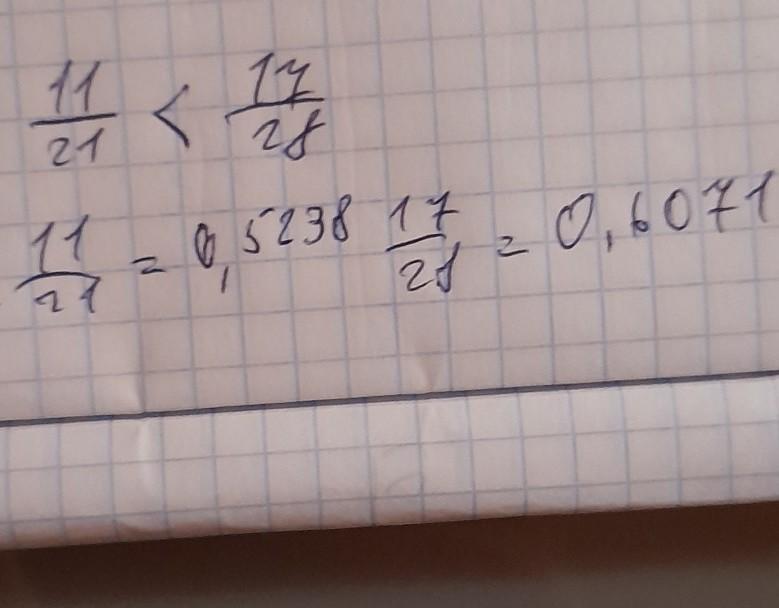 11/21 < 17/28
11/21 = 0,5238 17/28 = 0,6071